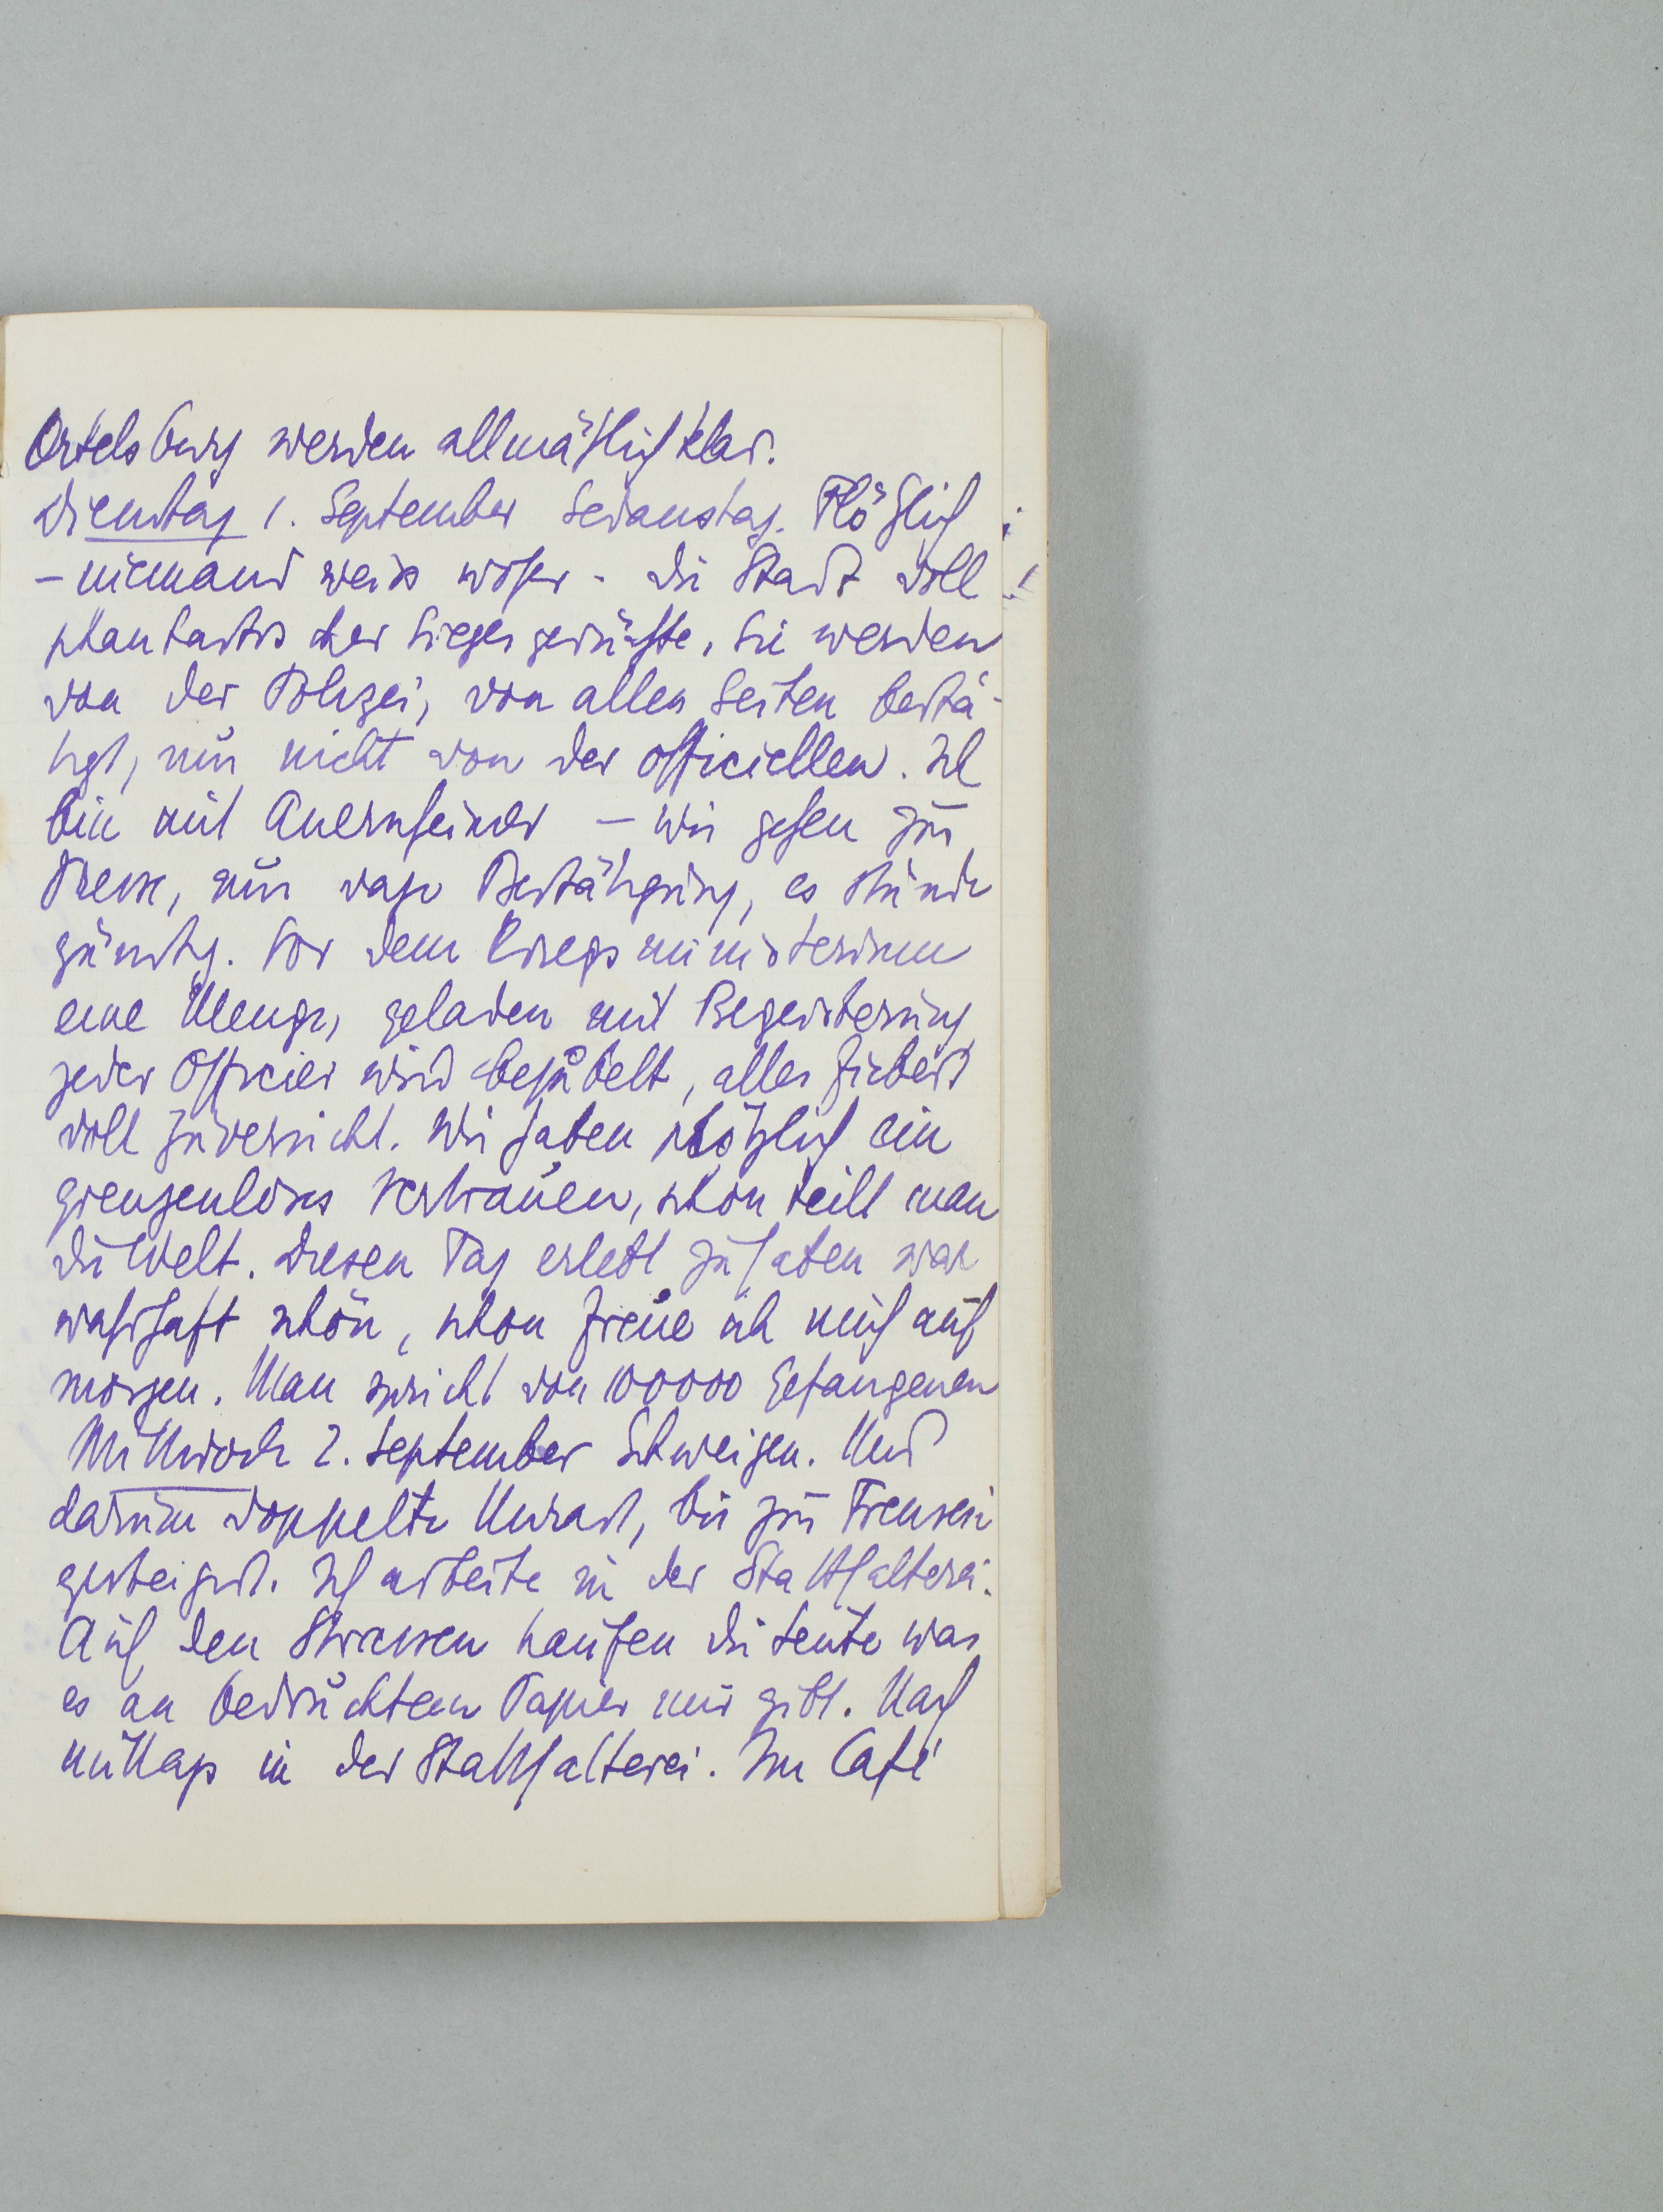 Ortelsburg werden allmählich klar.
Dienstag 1. September Sedanstag. Plötzlich
– niemand weiss woher – die Stadt voll
phantastischer Siegesgerüchte. Sie werden
von der Polizei, von allen Seiten bestä-
tigt, nur nicht von der officiellen. Ich
bin mit Auernheimer – wir gehen zur
Presse, nur vage Bestätigung, es stünde
günstig. Vor dem Kriegsministerium
eine Menge, geladen mit Begeisterung
jeder Officier wird bejubelt, alles fiebert
voll Zuversicht. Wir haben plötzlich ein
grenzenloses Vertrauen, schon teilt man
die Welt. Diesen Tag erlebt zu haben war
wahrhaft schön, schon freue ich mich auf
morgen. Man spricht von 100000 Gefangenen
Mittwoch 2. September Schweigen. Und
darum doppelte Unrast, bis zur Frenesie
gesteigert. Ich arbeite in der Statthalterei.
Auf den Strassen kaufen die Leute was
es an bedrucktem Papier nur gibt. Nach
mittags in der Statthalterei. Im Café